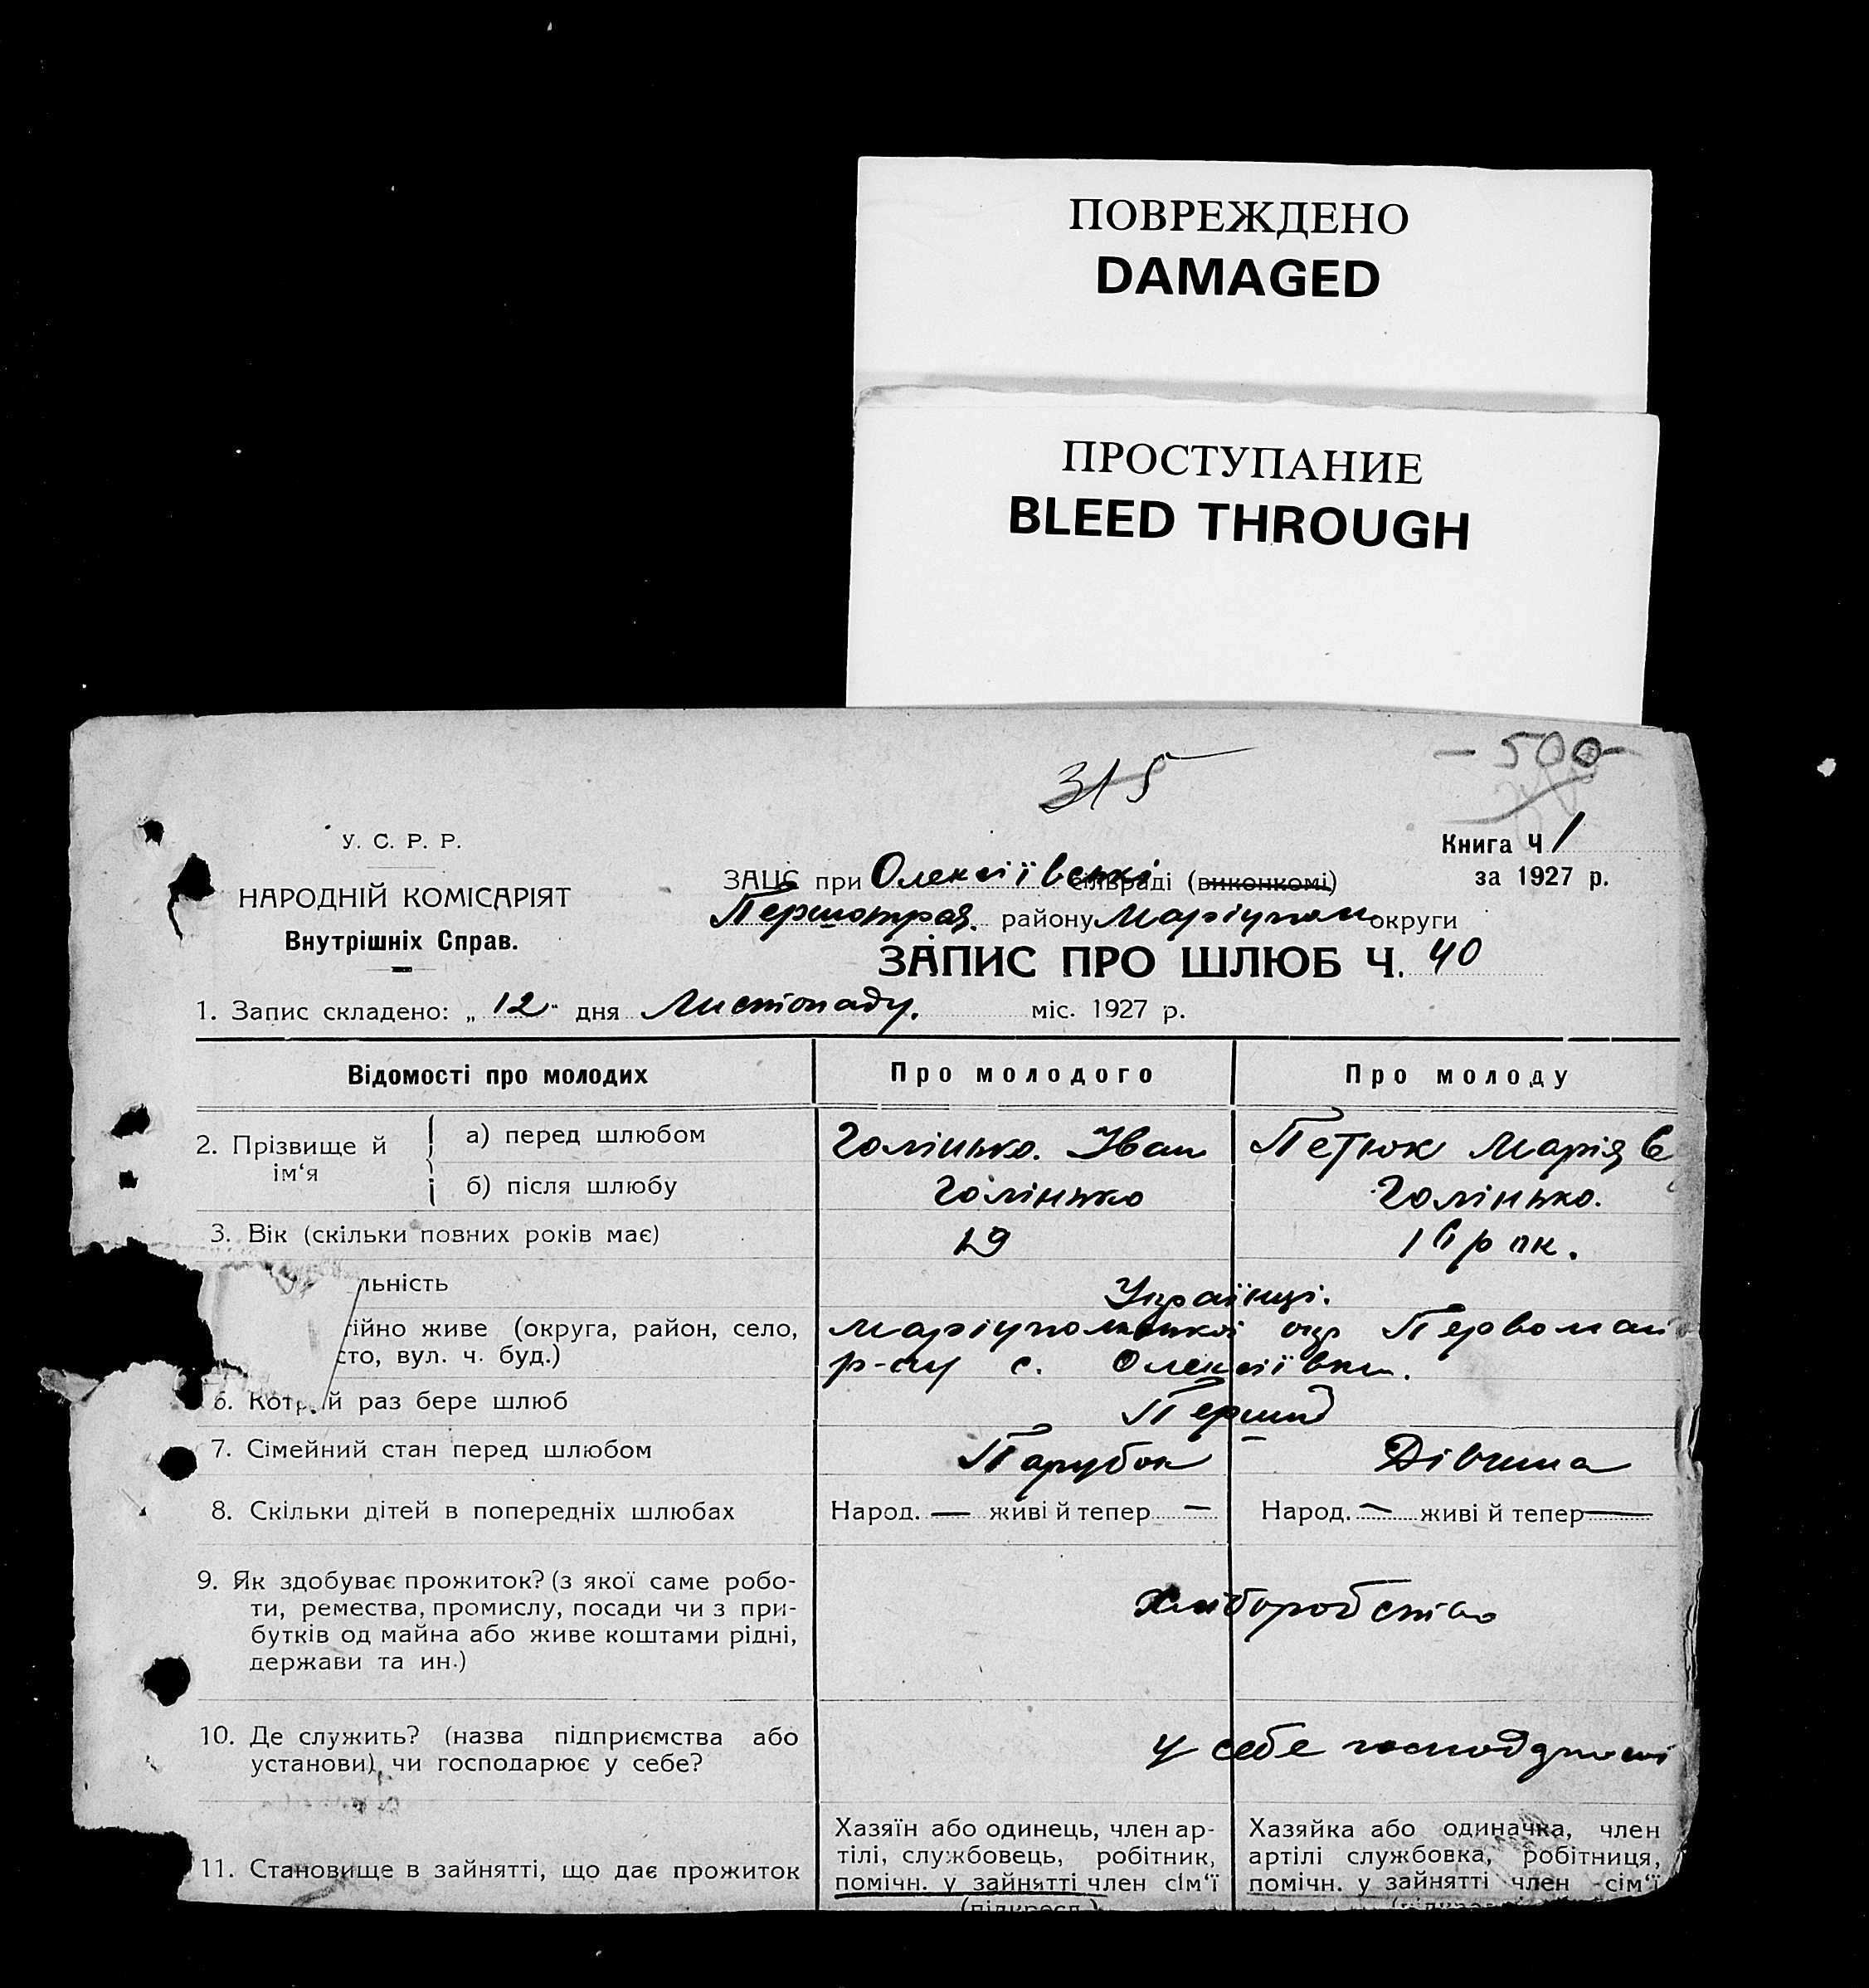 ПОВРЕЖДЕНО
DAMAGED
ПРОСТУПАНИЕ
BLEED THROUGH
- 500 -
315
У. С. Р. Р.
НАРОДНІЙ КОМІСАРІЯТ
Внутрішніх Справ.
Книга Ч 1
за 1927 р.
ЗАЦС при Олексіївські сільраді (виконкомі)
Першотрав. району Маріупол округи
ЗАПИС ПРО ШЛЮБ Ч. 40
1. Запис складено: „ 12 " дня Листопаду. міс. 1927 р.
Відомості про молодих Про молодого Про молоду
2. Прізвище й ім‘я
а) перед шлюбом Голінько. Іван Петюк Марія Є
б) після шлюбу Голінько Голінько.
3. Вік (скільки повних років має) 19
льність Українці.
ійно живе (округа, район, село, Маріупольської окр Первомай
сто, вул. ч. буд.) р-ну с. Олексіївки.
6. Котрий раз бере шлюб Перший
7. Сімейний стан перед шлюбом Парубок – Дівчина
8. Скільки дітей в попередніх шлюбах Народ. — живі й тепер — Народ. — живі й тепер —
9. Як здобуває прожиток? (з якої саме робо-
ти, ремества, промислу, посади чи з при-
бутків од майна або живе коштами рідні,
держави та ин.)
Хліборобство
10. Де служить? (назва підприємства або
установи) чи господарює у себе?
у себе
11. Становище в зайнятті, що дає прожиток
Хазяїн або одинець, член ар-
тілі, службовець, робітник,
помічн. у зайнятті член сім‘ї
(підкресл.)
Хазяйка або одиначка, член
артілі службовка, робітниця,
помічн. у зайнятті член сім‘ї